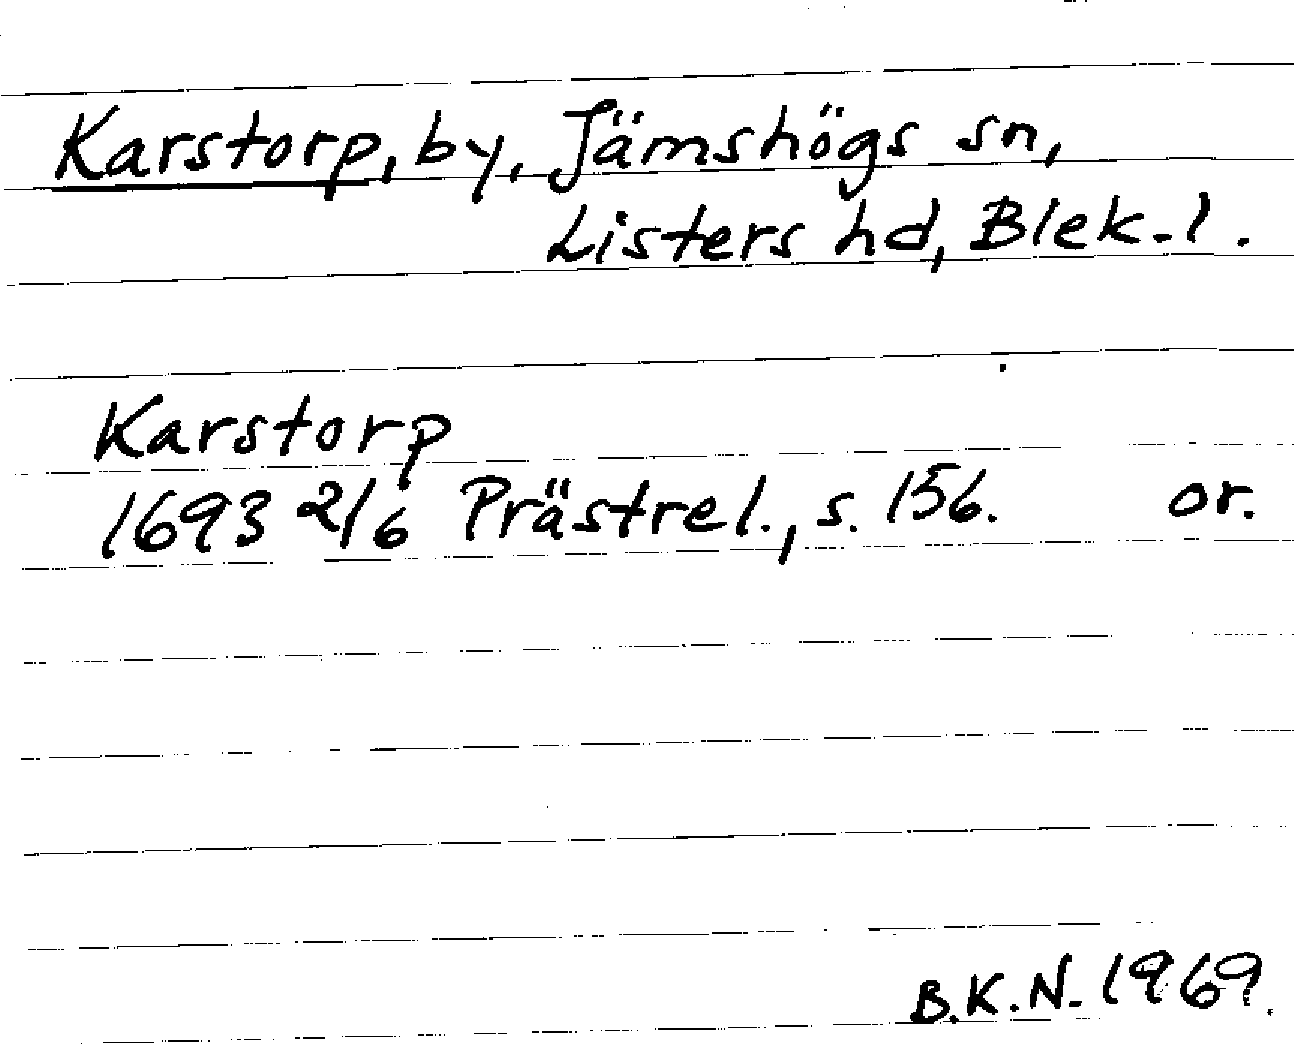 Karstorp, by, Jämshögs sn,
Listers hd, Blek. l.
Karstorp
1693 2/6 Prästrel., s. 156. or.
B.K.N. 1969.